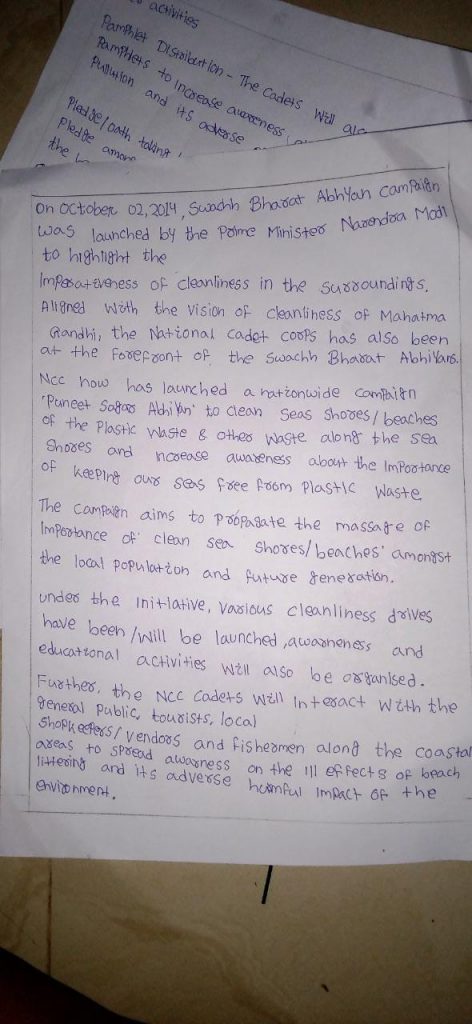 activities
Pamphlet Distribution - The Cadets Will
Pamphlets to increase awareness
Pullution and its adverse
Pledge/oath taking
Pledge among
the
On October 02, 2014, Swachh Bharat Abhiyan Campaign
was launched by the Prime Minister Narendra Modi
to highlight the
Imperativeness of cleanliness in the surroundings.
Aligned With the vision of cleanliness of Mahatma
Gandhi, the National cadet corps has also been
at the forefront of the Swachh Bharat Abhiyans.
Ncc now has launched a nationwide campaign
'Puneet Sagar Abhiyan' to clean seas shores/beaches
of the Plastic Waste & other Waste along the sea
Shores and ncrease awareness about the Importance
of keeping our seas free from Plastic Waste
The campaign aims to propagate the massage of
Importance of' clean sea shores/beaches' amongst
the local Population and future generation.
under the initiative, various cleanliness drives
have been/will be launched, awarneness and
educational activities will also be organised.
Further, the NCC Cadets Will Interact With the
general Public, tourists, local
Shopkeepers/vendors and fishermen along the coastal
areas to spread awarness on the ill effects of beach
littering and its adverse harmful Impact of the
environment.